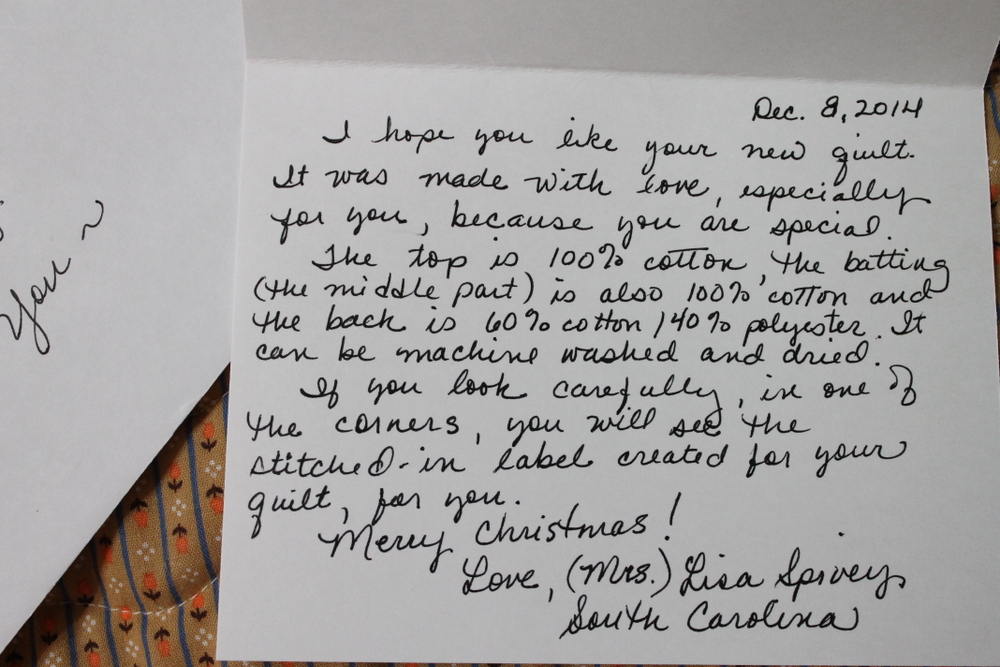 you ~
Dec. 8, 2014
I hope you like your new quilt.
It was made with love, especially
for you, because you are special.
The top is 100% cotton, the batting
(the middle part) is also 100% cotton and
the back is 60% cotton/40% polyester. It
can be machine washed and dried.
If you look carefully, in one of
the corners, you will see the
stitched-in label created for your
quilt, for you.
Merry Christmas!
Love, (Mrs.) Lisa Spivey
South Carolina